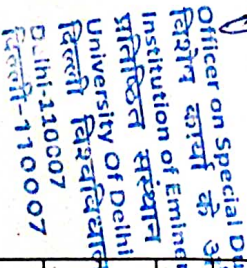 Officer on Special Du
विशेष कार्य के अ
Institution of Emine
प्रतिष्ठित संस्थान
University Of Delhi
दिल्ली विश्वविद्याल
Delhi-110007
दिल्ली-110007